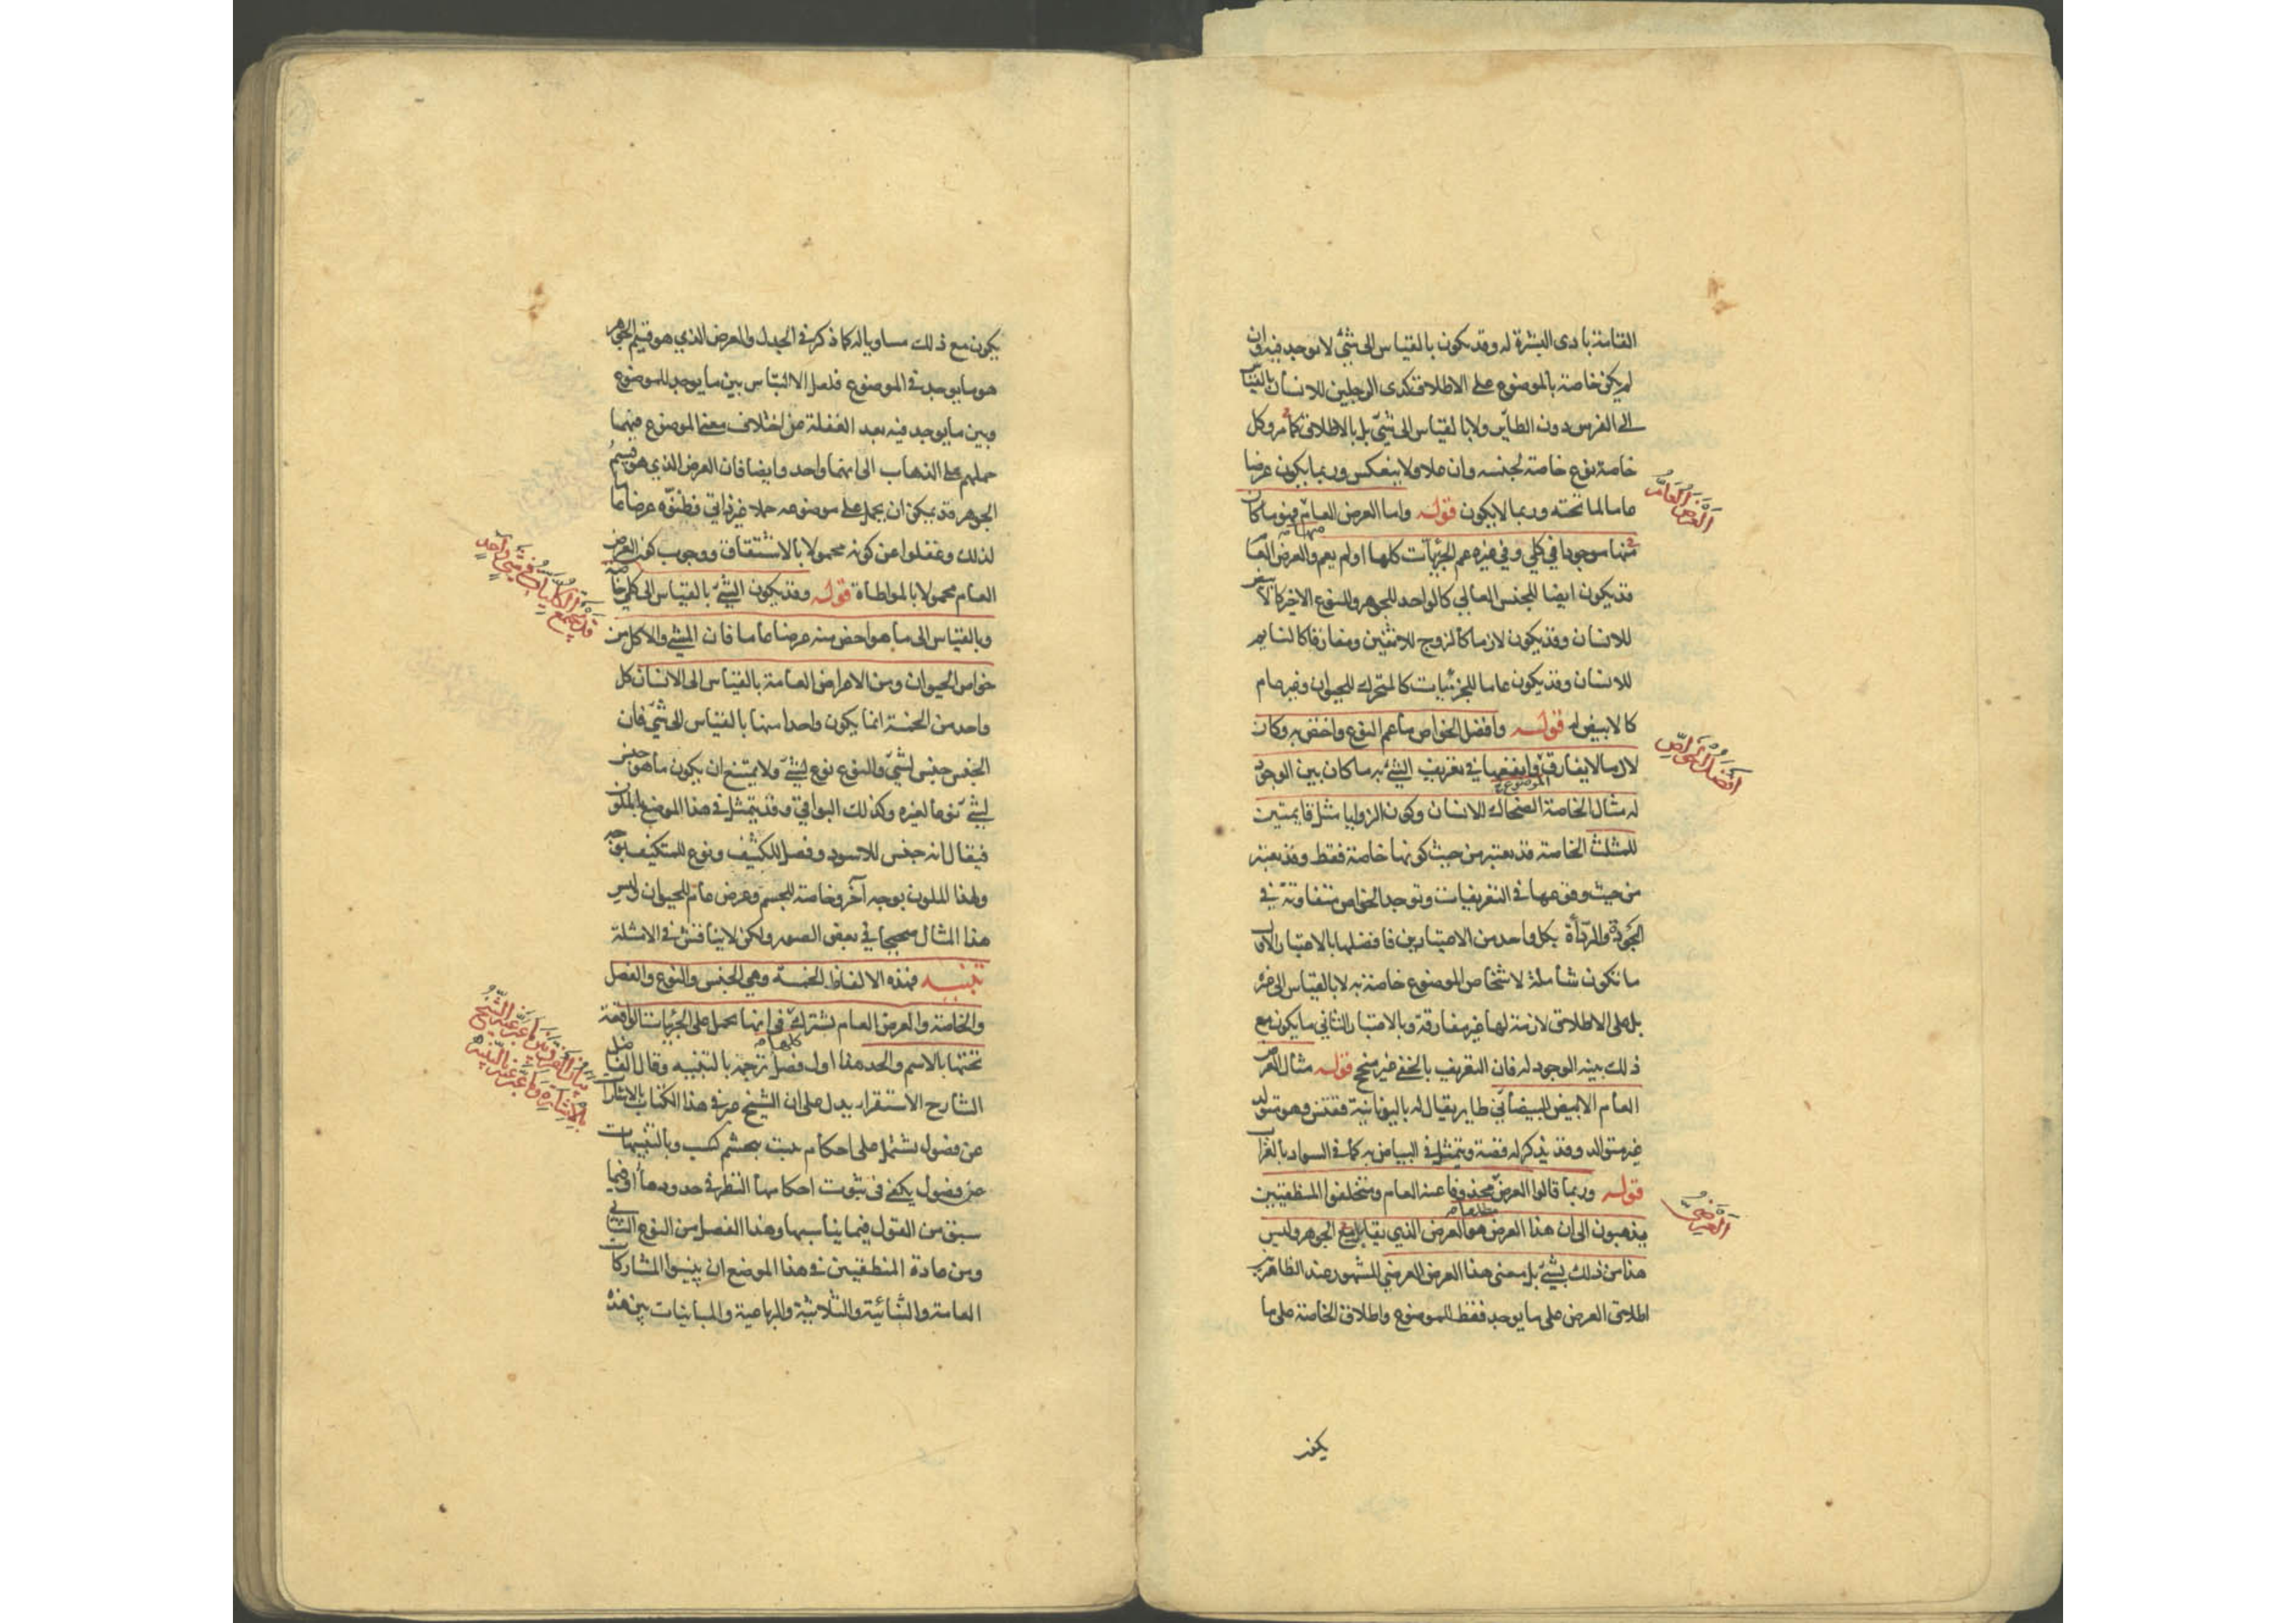 القامة بادى البشرة له وقد يكون بالقياس الى شئ لا يوجد فيه وان
لم يكن خاصة بالموضوع على الاطلاق كذى الرجلين للانسان بالقياس
الى الفرس دون الطاير ولا بالقياس الى شئ بل بالاطلاق كما مر وكل
خاصة نوع خاصة لجنسه وان علا ولا ينعكس وربما يكون عرضا
عاما لما تحته وربما لا يكون قوله واما العرض العام فهو ما كان
منها موجودا في كلي وفي غيره عم الجزئيات كلها او لم يعم والعرض العام
قد يكون ايضا للجنس العالي كالواحد للجوهر وللنوع الاخير كالابيض
للانسان وقد يكون لازما كالزوج للاثنين ومفارقا كالنايم
للانسان وقد يكون عاما للجزئيات كالمتحرك للحيوان وغير عام
كالابيض له قوله وافضل الخواص ما عم النوع واختص به وكان
لازما لا يفارق وانفعها في تعريف الشئ به ما كان بين الوجود
له مثال الخاصة الضحاك للانسان وكون الزوايا مثل قايمتين
للمثلث الخاصة قد يعتبر من حيث كونها خاصة فقط وقد يعتبر
من حيث وقوعها في التعريفات وتوجد الخواص متفاوتة في
الجودة والرداة بكل واحد من الاعتبارين فافضلها بالاعتبار الاول
ما تكون شاملة لاشخاص الموضوع خاصة به لا بالقياس الى غيره
بل على الاطلاق لازمة لها غير مفارقة وبالاعتبار الثاني ما يكون مع
ذلك بينه الوجود له فان التعريف بالخفي غير منجح قوله مثال العرض
العام الابيض للبيضاني طاير يقال له باليونانية ققنس وهو متولد
غير متوالد وقد يذكر له قصة ويتمثل في البياض به كما في السواد بالغراب
قوله وربما قالوا العرض محذوفا عنه العام ومتخلفوا المنطقيين
يذهبون الى ان هذا العرض هو العرض الذي يقابل مع الجوهر وليس
هذا من ذلك بشئ بل معنى هذا العرض العرضي المشهور عند الظاهريين
اطلاق العرض على ما يوجد فقط للموضوع واطلاق الخاصة على ما
يكون
العرض العام
افضل الخواص
العرضي
يكون مع ذلك مساويا له كما ذكر في الجدل والعرض الذي هو قسيم الجوهر
هو ما يوجد في الموضوع فلعل الالتباس بين ما يوجد للموضوع
وبين ما يوجد فيه بعد الغفلة عن اختلاف معنى الموضوع فيهما
حملهم على الذهاب الى انهما واحد وايضا فان العرض الذي هو قسيم
الجوهر قد يمكن ان يحمل على موضوعه حملا غير ذاتي فظنوه عرضا عاما
لذلك وغفلوا عن كونه محمولا بالاشتقاق ووجوب كون العرض
العام محمولا بالمواطاة قوله وقد يكون الشئ بالقياس الى كلي خاصة
وبالقياس الى ما هو اخص منه عرضا عاما فان المشي والاكل من
خواص الحيوان ومن الاعراض العامة بالقياس الى الانسان كل
واحد من الخمسة انما يكون واحدا منها بالقياس الى شئ فان
الجنس جنس لشئ والنوع نوع لشئ ولا يمتنع ان يكون ما هو جنس
لشئ نوعا لغيره وكذلك البواقي وقد يتمثل في هذا الموضع بالملون
فيقال انه جنس للاسود وفصل للكثيف ونوع للمتكيف بوجه
ولهذا الملون بوجه آخر وخاصة للجسم وعرض عام للحيوان وليس
هذا المثال صحيحا في بعض الصور ولكن لا يناقش في الامثلة
تنبيه فهذه الالفاظ الخمسة وهي الجنس والنوع والفصل
والخاصة والعرض العام تشترك كلها في انها تحمل على الجزئيات الواقعة
تحتها بالاسم والحد هذا اول فصل ترجمه بالتنبيه وقال الفاضل
الشارح الاستقرار يدل على ان الشيخ عبر في هذا الكتاب بالاشارات
عن فصول تشتمل على احكام يثبت بتجشم كسب وبالتنبيهات
عن فصول يكفى في ثبوت احكامها النظر في حدودها او فيما
سبق من القول فيما يناسبها وهذا الفصل من النوع الثاني
ومن عادة المنطقيين في هذا الموضع ان يبينوا المشاركات
العامة والثنائية والثلاثية والرباعية والمباينات بين هذه
قد يجتمع الكليات في شئ واحد
بيان الفرق بين ما عبر عنه الشيخ
بالاشاره وما عبر عنه بالتنبيه